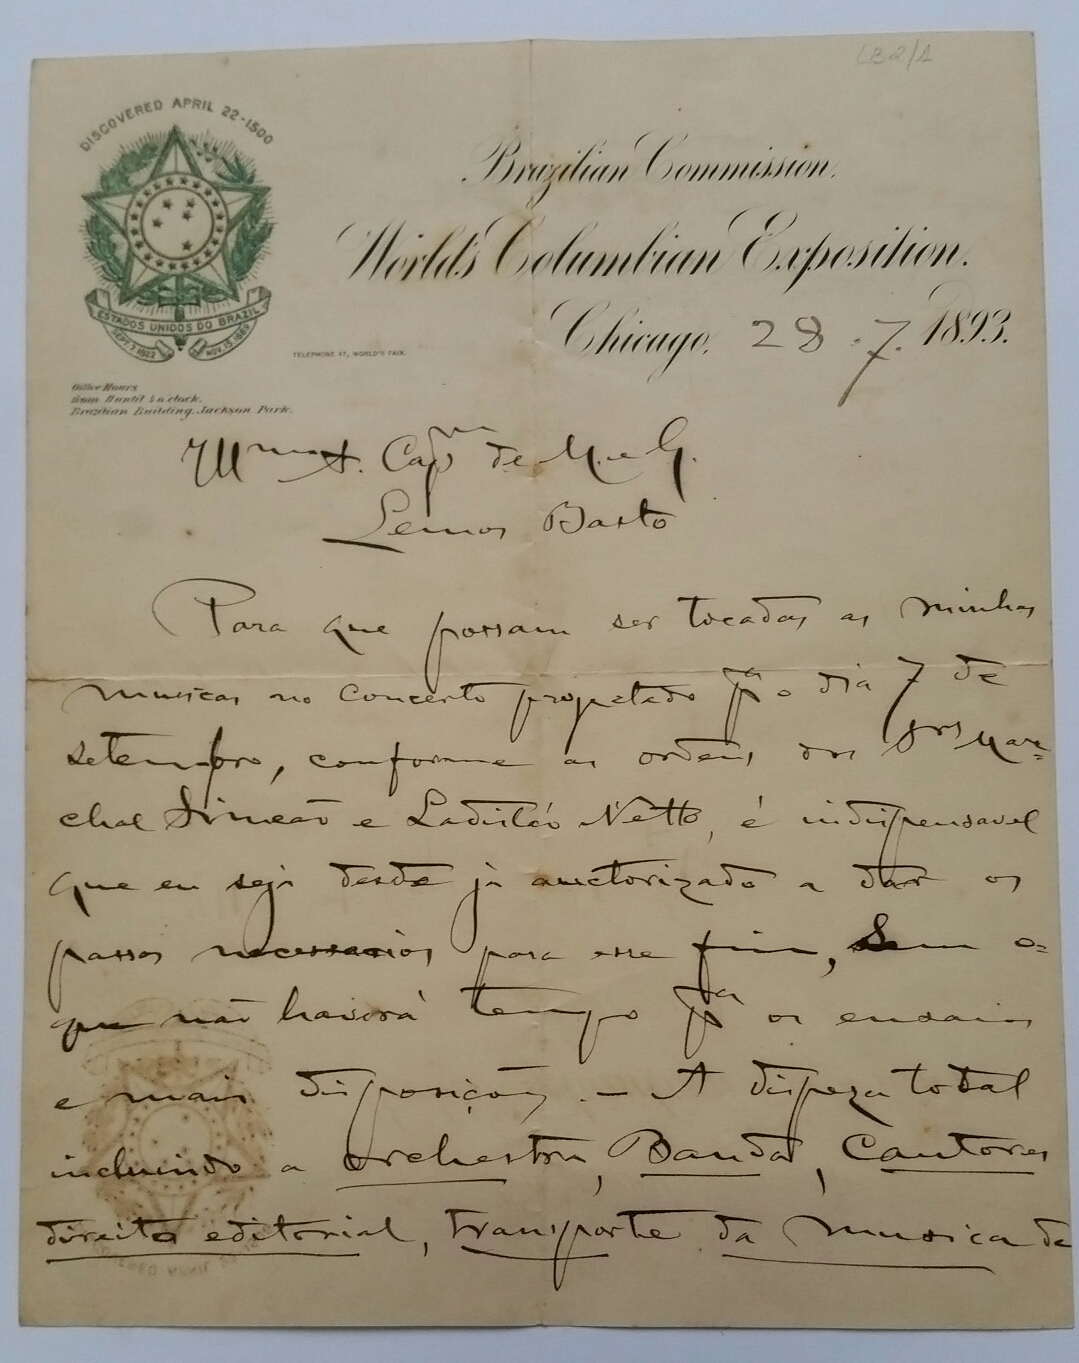 LB2/1
DISCOVERED APRIL 22-1500
ESTADOS UNIDOS DO BRAZIL
SEPT. 7. 1822 NOV. 15. 1889
Brazilian Commission.
World's Columbian Exposition.
Chicago, 28.7.1893.
TELEPHONE 57, WORLD'S FAIR.
Office Hours
from 11 until 4 o'clock.
Brazilian Building, Jackson Park.
Illmo Sr. Capm de M. e G.
Lemos Basto
Para que possam ser tocadas as minhas
musicas no concerto projetado pa o dia 7 de
setembro, conforme as ordens dos Srs Mare=
chal Simeão e Ladisláo Netto, é indispensavel
que eu seja desde já auctorizado a dar os
passos necessarios para esse fim, sem o=
que não haverá tempo pa os ensaios
e mais disposições. — A dispeza total
incluindo a orchestra, Banda, Cantores
direito editorial, transporte da musica de